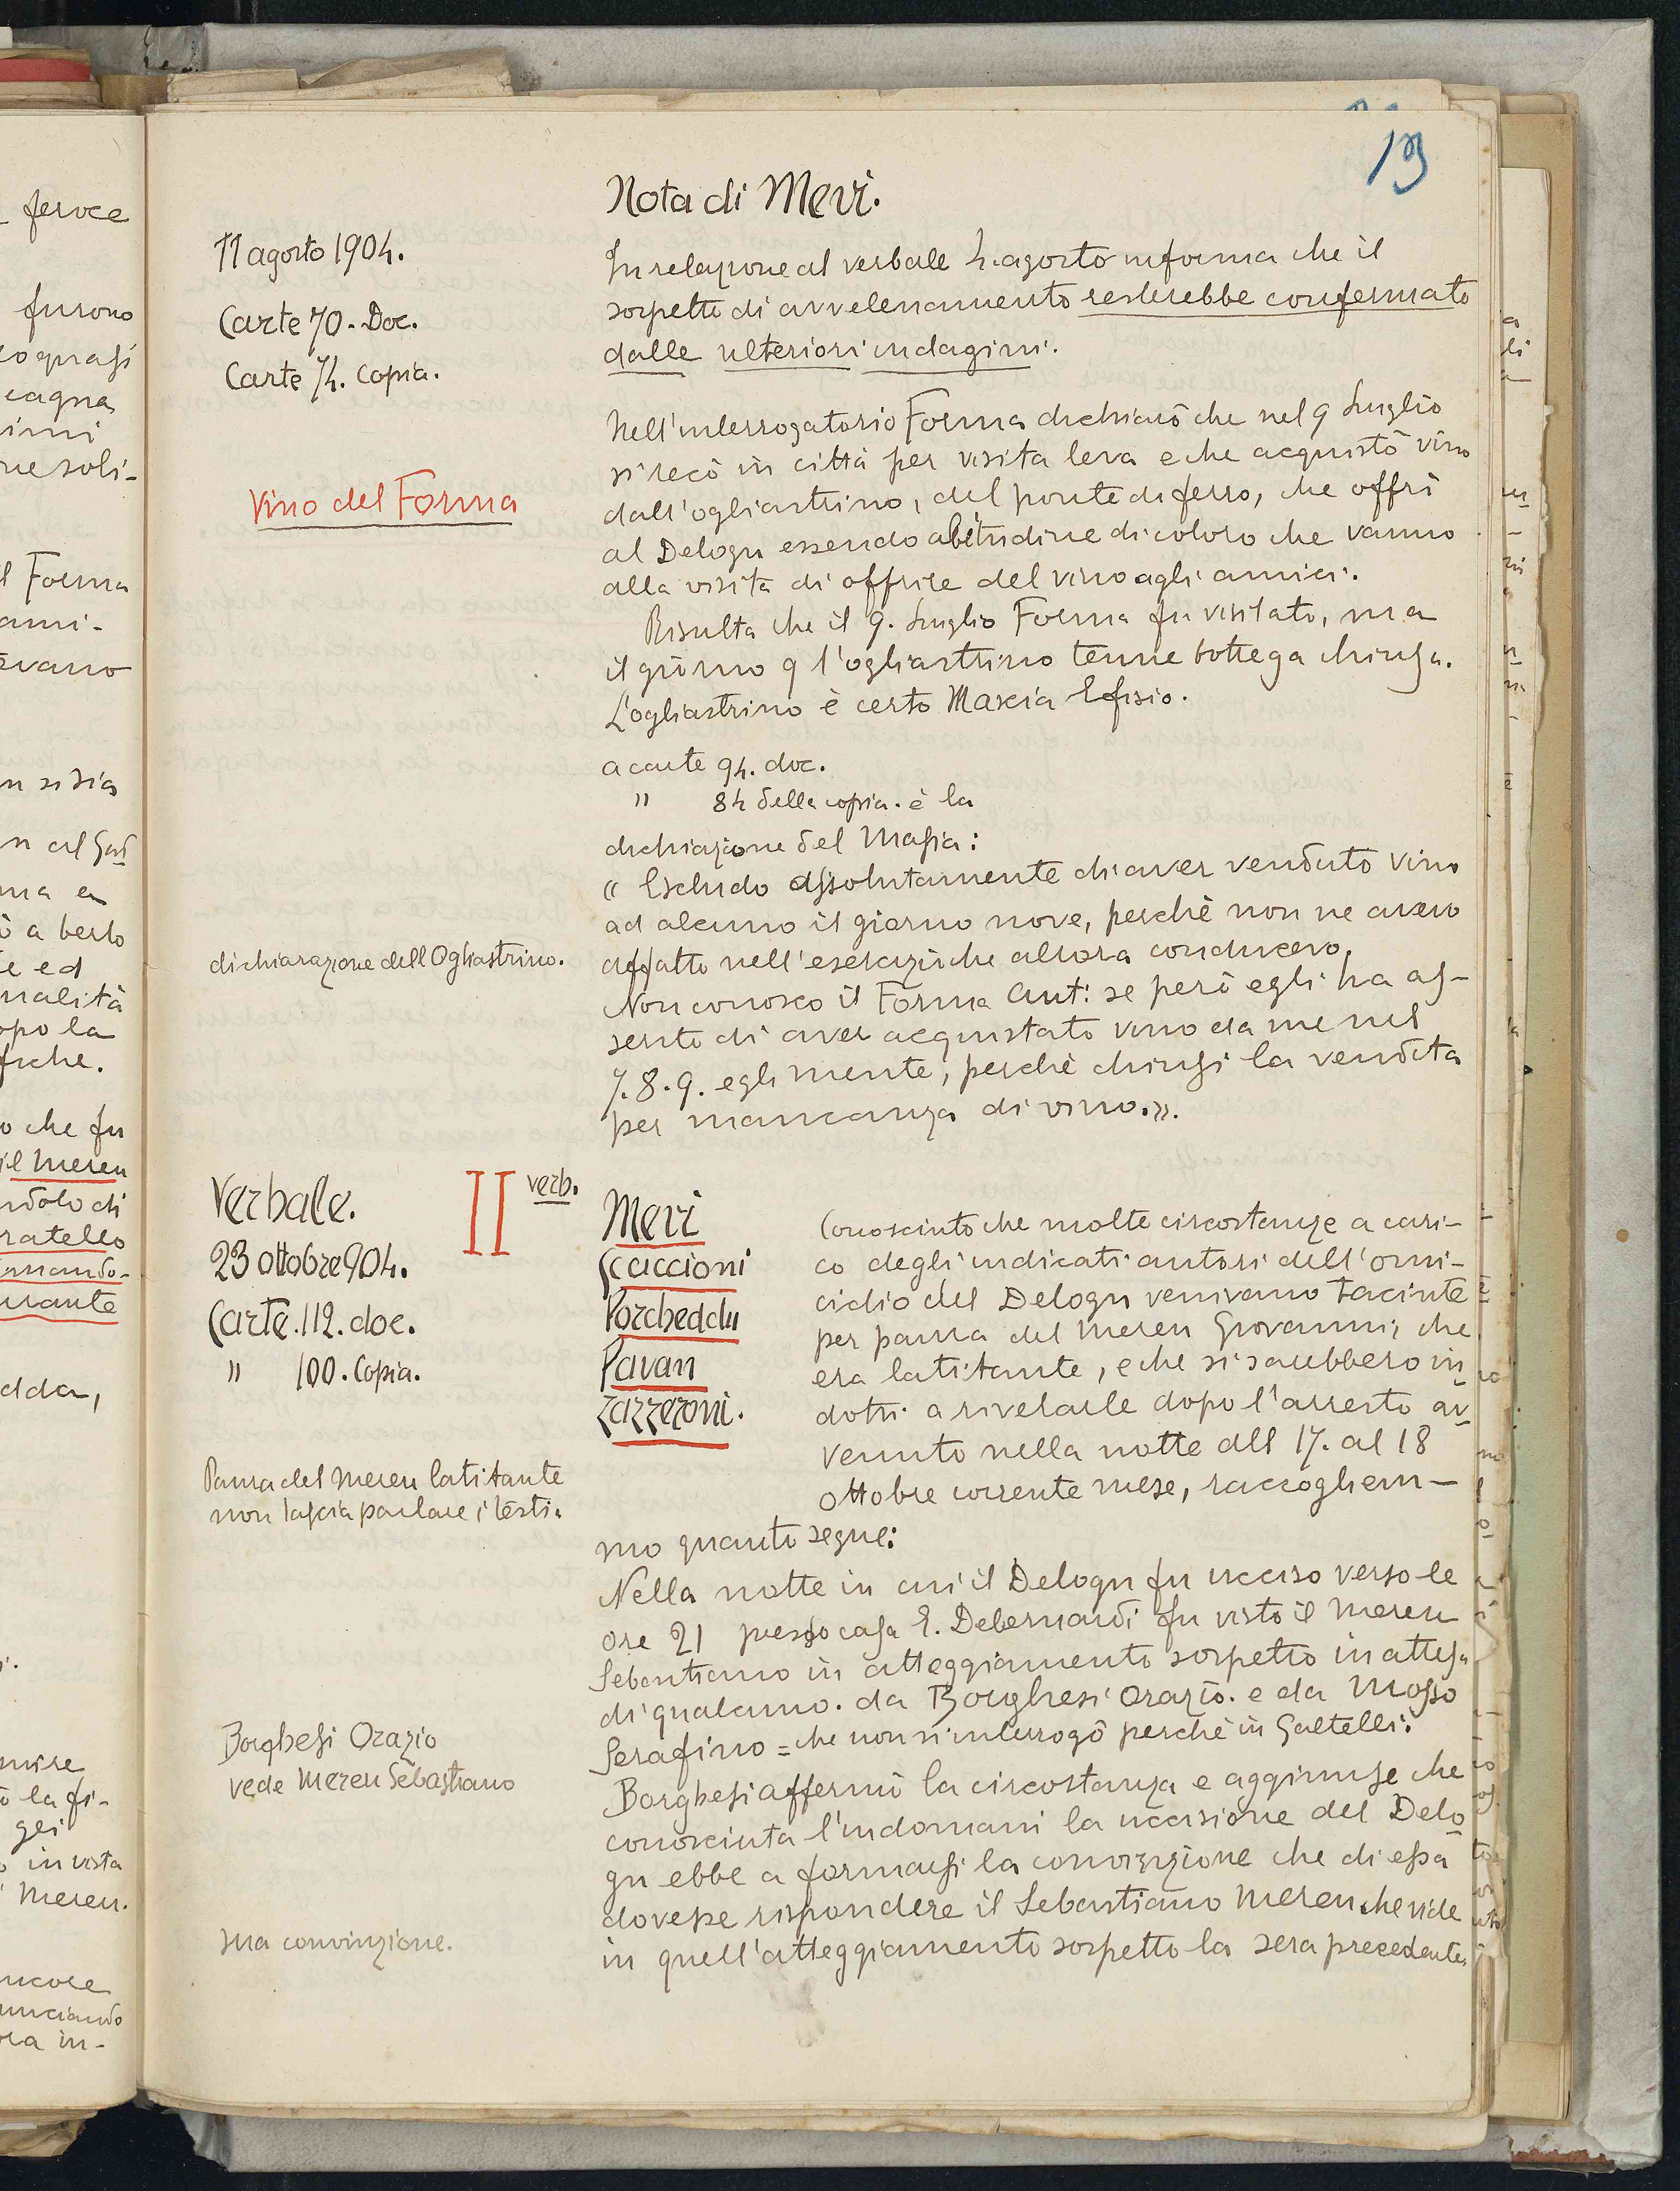 13
Nota di Mevi.
11 agosto 1904.
Carte 70. Doc.
Carte 74. Copia.
In relazione al verbale 4. agosto informa che il
sospetto di avvelenamento resterebbe confermato
dalle ulteriori indagini.
Vino del Forma
Nell'interrogatorio Forma dichiarò che nel 9 Luglio
si recò in città per visita leva e che acquistò vino
dall'ogliastrino, del ponte di ferro, che offrì
al Delogu essendo abitudine di coloro che vanno
alla visita di offrire del vino agli amici.
Risulta che il 9. Luglio Forma fu visitato, ma
il giorno 9 l'ogliastrino tenne bottega chiusa.
L'ogliastrino è certo Mascia Efisio.
a carte 94. doc.
" 84 della copia. è la
dichiazione del Masia:
dichiarazione dell Ogliastrino.
« Escludo assolutamente di aver venduto vino
ad alcuno il giorno nove, perchè non ne avevo
affatto nell'esercizio che allora conducevo.
Non conosco il Forma Ant: se però egli ha as-
serito di aver acquistato vino da me nel
7. 8. 9. egli mente, perchè chiusi la vendita
per mancanza di vino.».
Verbale.
23 ottobre 904.
Carte. 112. doc.
" 100. Copia.
II verb.
Mevi
Scaccioni
Porcheddu
Pavan
Zazzeroni.
Conosciuto che molte circostanze a cari-
co degli indicati autori dell'omi-
cidio del Delogu venivano taciute
per paura del Mereu Giovanni, che
era latitante, e che si sarebbero in
dotti a rivelarle dopo l'arresto av
venuto nella notte dll 17. al 18
ottobre corrente mese, raccogliem-
mo quanto segue:
Paura del Mereu latitante
non lascia parlare i testi.
Nella notte in cui il Delogu fu ucciso verso le
ore 21 presso casa E. Debernardi fu visto il Mereu
Sebastiano in atteggiamento sospetto in attesa
di qualcuno. da Borghesi Orazio. e da Mosso
Serafino = che non si interrogò perchè in Galtellì.
Borghesi Orazio
vede Mereu Sebastiano
Borghesi affermò la circostanza e aggiunse che
conosciuta l'indomani la uccisione del Delo
gu ebbe a formarsi la convinzione che di essa
dovesse rispondere il Sebastiano Mereu che vide
in quell'atteggiamento sospetto la sera precedente.
sua convinzione.